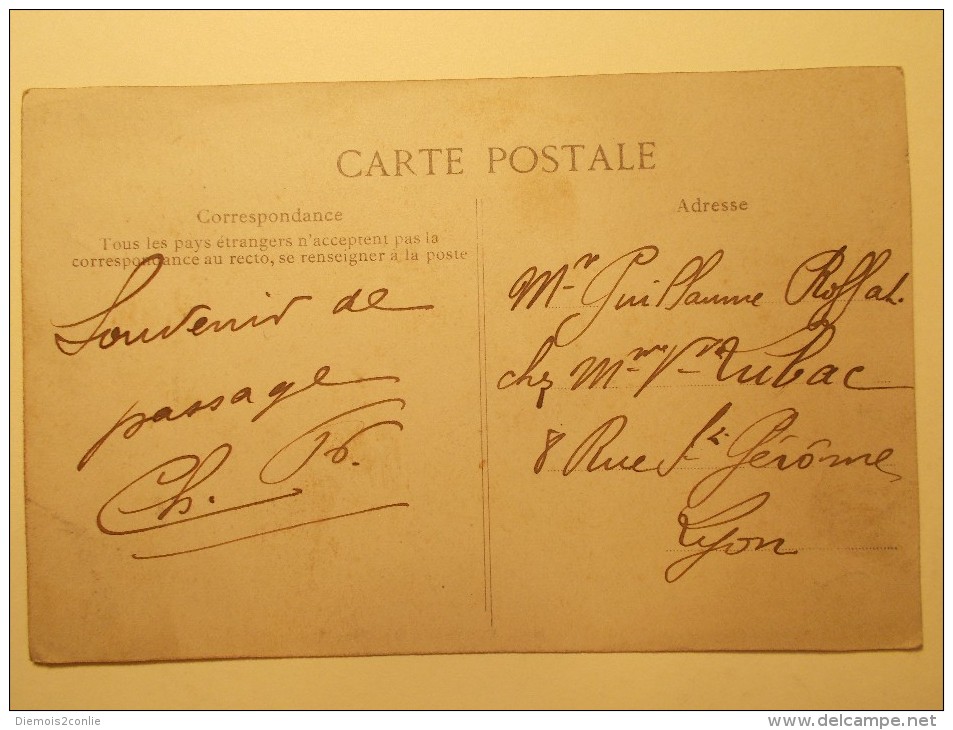 CARTE POSTALE
Correspondance
Tous les pays étrangers n'acceptent pas la
correspondance au recto, se renseigner à la poste
Souvenir de
passage
Ch. Fr.
Adresse
Mr Guillaume Roffat.
chz Mme Vve Tubac
8 Rue St Gérôme
Lyon
Diemois2conlie
www.delcampe.net